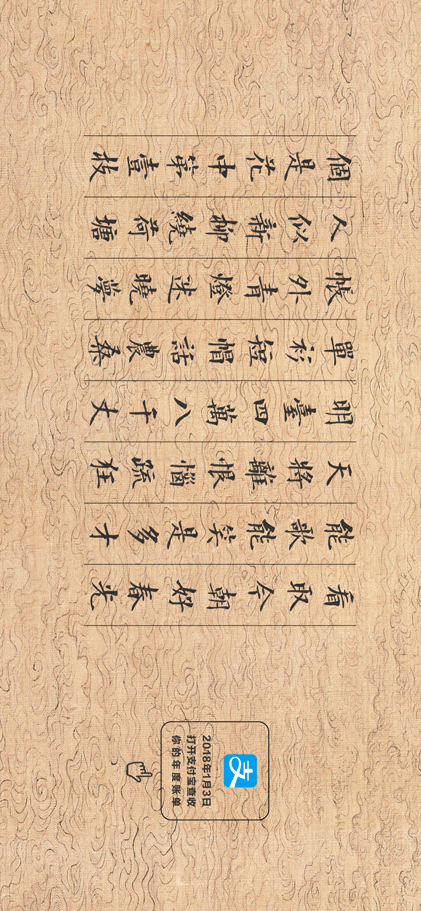 個是花中第壹枝
人似新柳繞荷塘
帳外青燈迷曉夢
單衫短帽話農桑
明臺四萬八千丈
天將離恨惱疏狂
能歌能笑是多才
看取今朝好春光
支
2018年1月3日
打开支付宝查收
你的年度账单